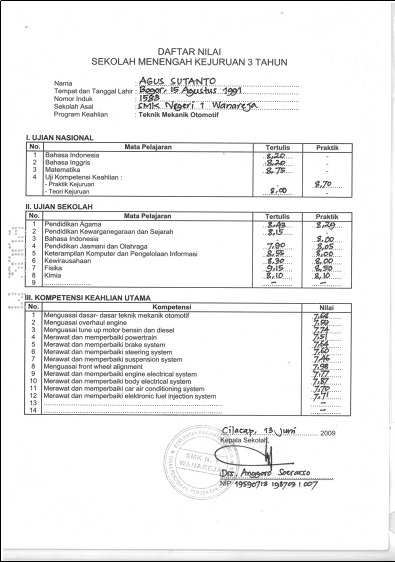 DAFTAR NILAI
SEKOLAH MENENGAH KEJURUAN 3 TAHUN
Nama : AGUS SUTANTO
Tempat dan Tanggal Lahir : Bogor, 15 Agustus 1991
Nomor Induk : 1583
Sekolah Asal : SMK Negeri 1 Wanareja
Program Keahlian : Teknik Mekanik Otomotif
I. UJIAN NASIONAL
No. Mata Pelajaran Tertulis Praktik
1 Bahasa Indonesia 8,20 -
2 Bahasa Inggris 8,20 -
3 Matematika 8,75 -
4 Uji Kompetensi Keahlian :
- Praktik Kejuruan 8,70
- Teori Kejuruan 8,00 -
II. UJIAN SEKOLAH
No. Mata Pelajaran Tertulis Praktik
1 Pendidikan Agama 8,43 8,20
2 Pendidikan Kewarganegaraan dan Sejarah 8,15 -
3 Bahasa Indonesia - 8,00
4 Pendidikan Jasmani dan Olahraga 7,80 8,05
5 Keterampilan Komputer dan Pengelolaan Informasi 8,55 8,00
6 Kewirausahaan 8,30 8,00
7 Fisika 9,15 8,50
8 Kimia 8,10 8,10
9 .................... - -
III. KOMPETENSI KEAHLIAN UTAMA
No. Kompetensi Nilai
1 Menguasai dasar- dasar teknik mekanik otomotif
2 Menguasai overhaul engine
3 Menguasai tune up motor bensin dan diesel 7,74
4 Merawat dan memperbaiki powertrain 7,51
5 Merawat dan memperbaiki brake system 7,64
6 Merawat dan memperbaiki steering system 7,60
7 Merawat dan memperbaiki suspension system 7,46
8 Menguasai front wheel alignment 7,98
9 Merawat dan memperbaiki engine electrical system 7,77
10 Merawat dan memperbaiki body electrical system 7,87
11 Merawat dan memperbaiki car air conditioning system 7,70
12 Merawat dan memperbaiki elektronic fuel injection system 7,71
13 .................... -
14 .................... -
Cilacap, 13 Juni 2009
Kepala Sekolah,
SMK N. 1
WANAREJA
Drs. Anggoro Soerarso
NIP. 19590718 198709 1 007